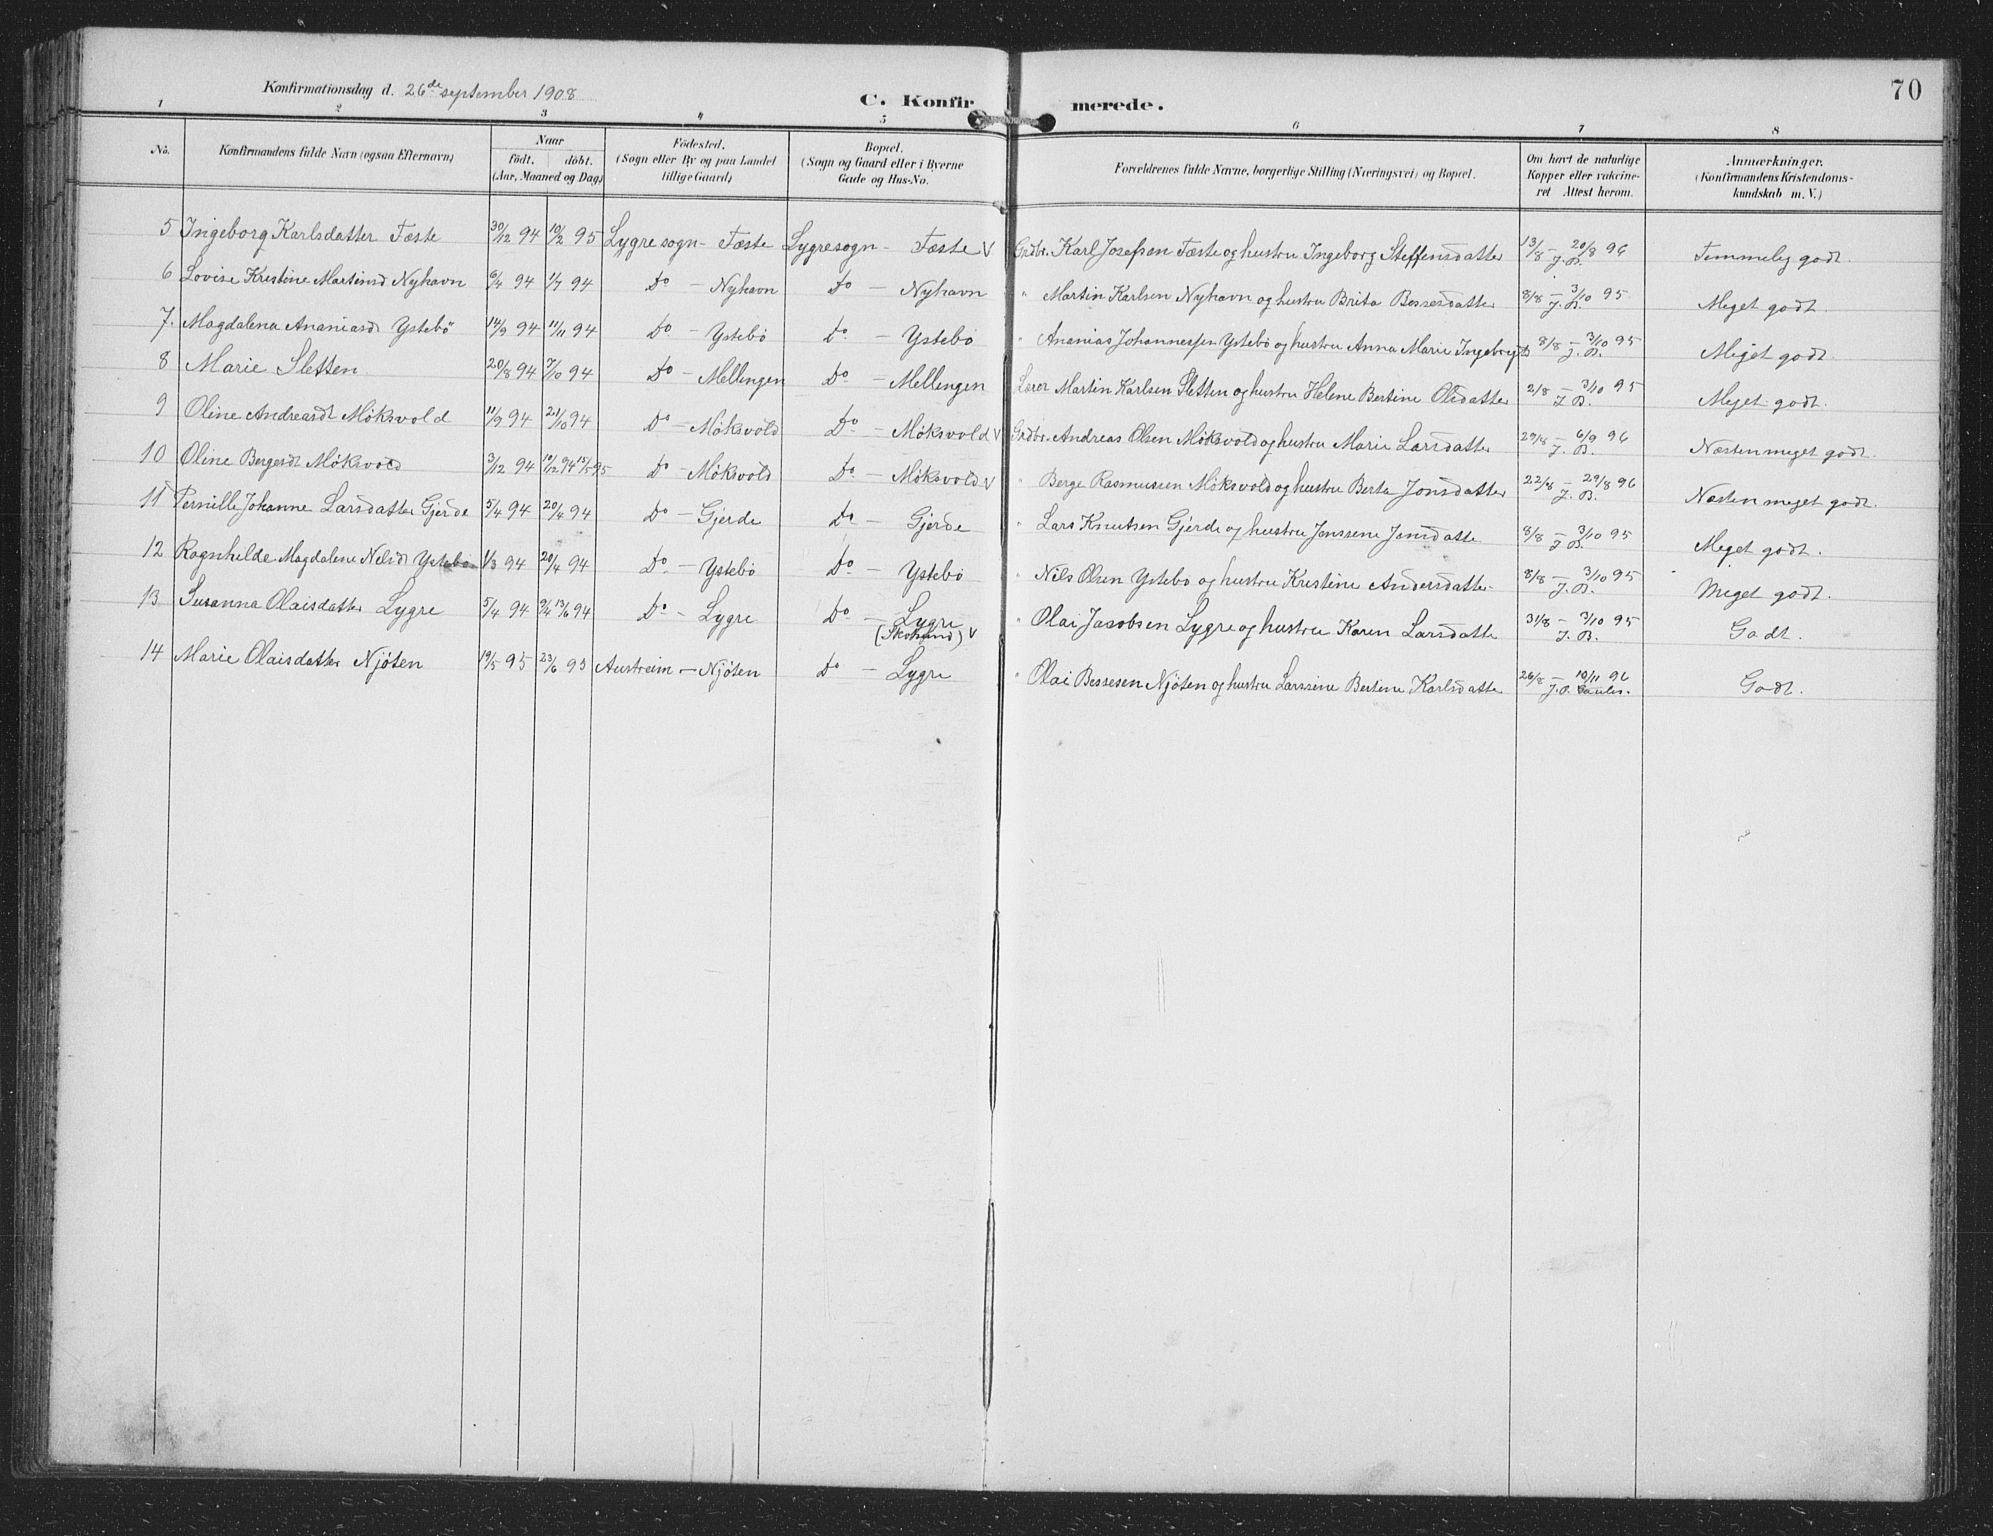 70
Konfirmationsdag d. 26de september 1908
C. Konfirmerede.
1 2 3 4 5 6 7 8
No. | Konfirmandens fulde Navn (ogsaa Efternavn) | Naar født. døbt. (Aar, Maaned og Dag) | Fødested. (Sogn eller By og paa Landet tillige Gaard) | Bopæl. (Sogn og Gaard eller i Byerne Gade og Hus-No. | Forældrenes fulde Navne, borgerlige Stilling (Næringsvei) og Bopæl. | Om havt de naturlige Kopper eller vakcineret Attest herom. | Anmærkninger. (Konfirmandens Kristendomskundskab m. V.)
5 Ingeborg Karlsdatter Fæste | 30/12 94 | 10/2 95 | Lygre sogn - Fæste | Lygresogn - Fæste v | Grdbr. Karl Josefsen Fæste og hustru Ingeborg Steffensdatter | 13/8 - 20/8 96 J. B. | Temmelig godt.
6 Lovise Kristine Martinsd Nyhavn | 6/4 94 | 1/7 94 | Do - Nyhavn | Do - Nyhavn | " Martin Karlsen Nyhavn og hustru Brita Bessesdatter | 8/8 - 3/10 95 J. B. | Meget godt.
7. Magdalena Ananiasd Ystebö | 14/9 94 | 11/11 94 | Do - Ystebö | Do - Ystebö | " Ananias Johannessen Ystebö og hustru Anna Marie Ingebrigtsd | 8/8 - 3/10 95 J. B. | Meget godt.
8 Marie Sletten | 20/8 94 | 7/10 94 | Do - Mellingen | Do - Mellingen | Lærer Martin Karlsen Sletten og hustru Helene Bertine Olsdatter | 2/8 - 3/10 95 J. B. | Meget godt.
9 Oline Andreasdt Møksvold | 11/9 94 | 21/10 94 | Do - Møksvold | Do - Møksvold v | Grdbr. Andreas Olsen Møksvold og hustru Marie Larsdatter | 29/8 - 6/9 96 J. B. | Næsten meget godt.
10 Oline Bergesdt Møksvold | 3/12 94 | 10/12 94 15/5 95 | Do - Møksvold | Do - Møksvold v | " Berge Rasmussen Møksvold og hustru Berta Jonsdatter | 22/8 - 29/8 96 J. B. | Næsten meget godt.
11 Pernille Johanne Larsdatter Gjerde | 5/4 94 | 20/4 94 | Do - Gjerde | Do - Gjerde | " Lars Knutsen Gjerde og hustru Jenssene Jonsdatte | 8/8 - 3/10 95 J. B. | Meget godt.
12 Ragnhilde Magdalene Nelsd Ystebö | 1/3 94 | 20/4 94 | Do - Ystebö | Do - Ystebö | " Nils Olsen Ystebö og hustru Kristine Andersdatter | 8/8 - 3/10 95 J. B. | Meget godt.
13 Susanna Olaisdatter Lygre | 5/4 94 | 9/4 13/6 94 | Do - Lygre | Do - Lygre v | " Olai Jacobsen Lygre og hustru Karen Larsdatte | 31/8 - 3/10 95 J. B. | Godt.
14 Marie Olaisdatter Njöten | 19/5 95 | 23/6 93 | Austreim - Njöten | Do - Lygre | " Olai Bessesen Njöten og hustru Larssine Bertine Karlsdatte | 26/8 - 10/11 96 | Godt.